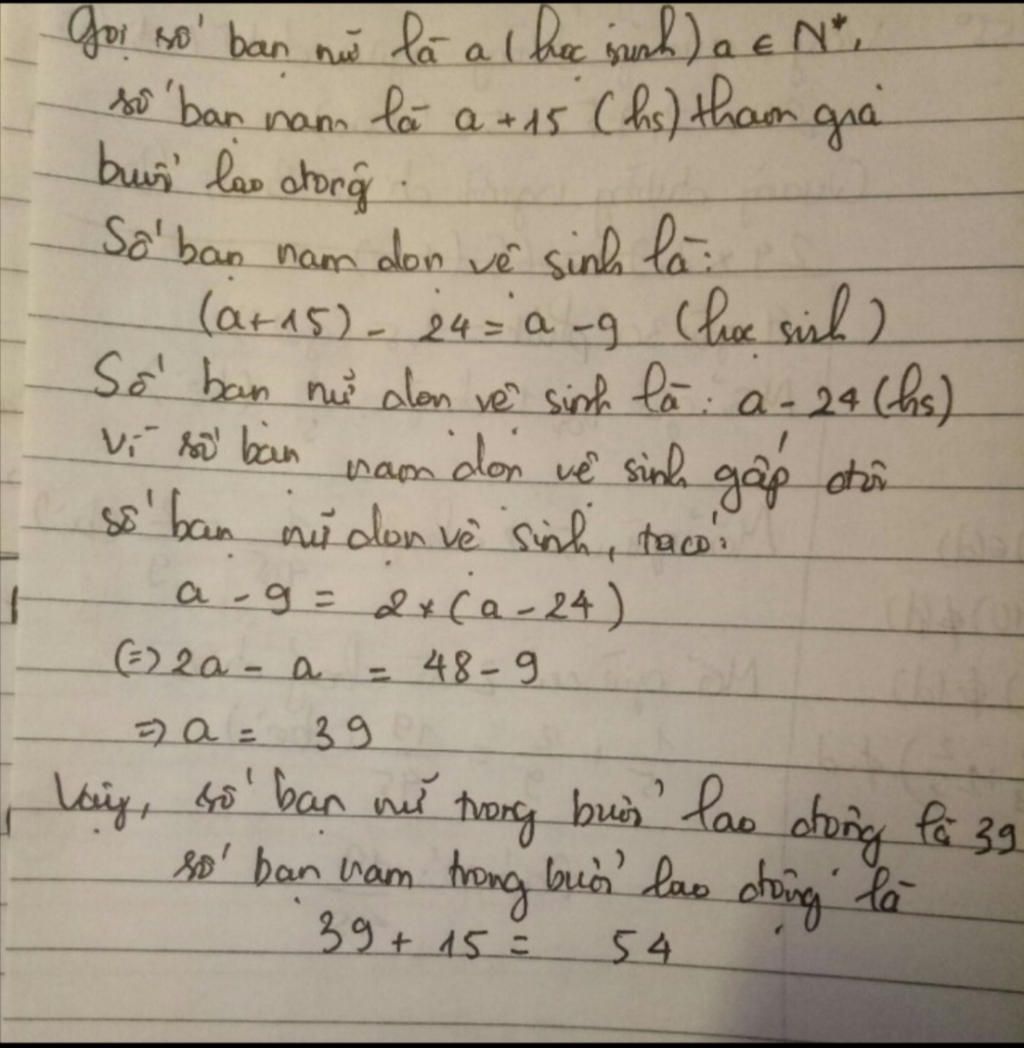 Gọi số bạn nữ là a (học sinh) a ∈ N*,
số bạn nam là a + 15 (hs) tham gia
buổi lao động.
Số bạn nam dọn vệ sinh là:
(a + 15) - 24 = a - 9 (học sinh)
Số bạn nữ dọn vệ sinh là: a - 24 (hs)
Vì số bạn nam dọn vệ sinh gấp đôi
số bạn nữ dọn vệ sinh, ta có:
a - 9 = 2 × (a - 24)
(=) 2a - a = 48 - 9
=> a = 39
Vậy, số bạn nữ trong buổi lao động là 39
số bạn nam trong buổi lao động là
39 + 15 = 54